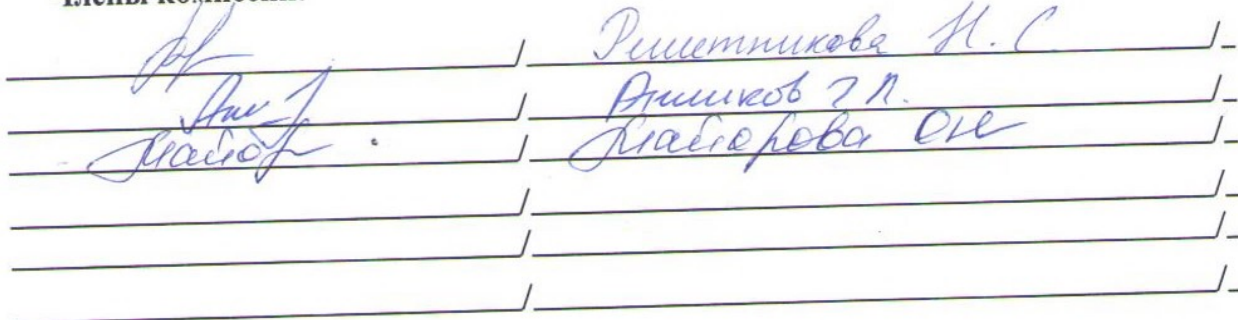 Члены комиссии:
/ Решетникова Н. С. /
/ Аншуков Г Л. /
Майор / Майорова ОН /
/ /
/ /
/ /